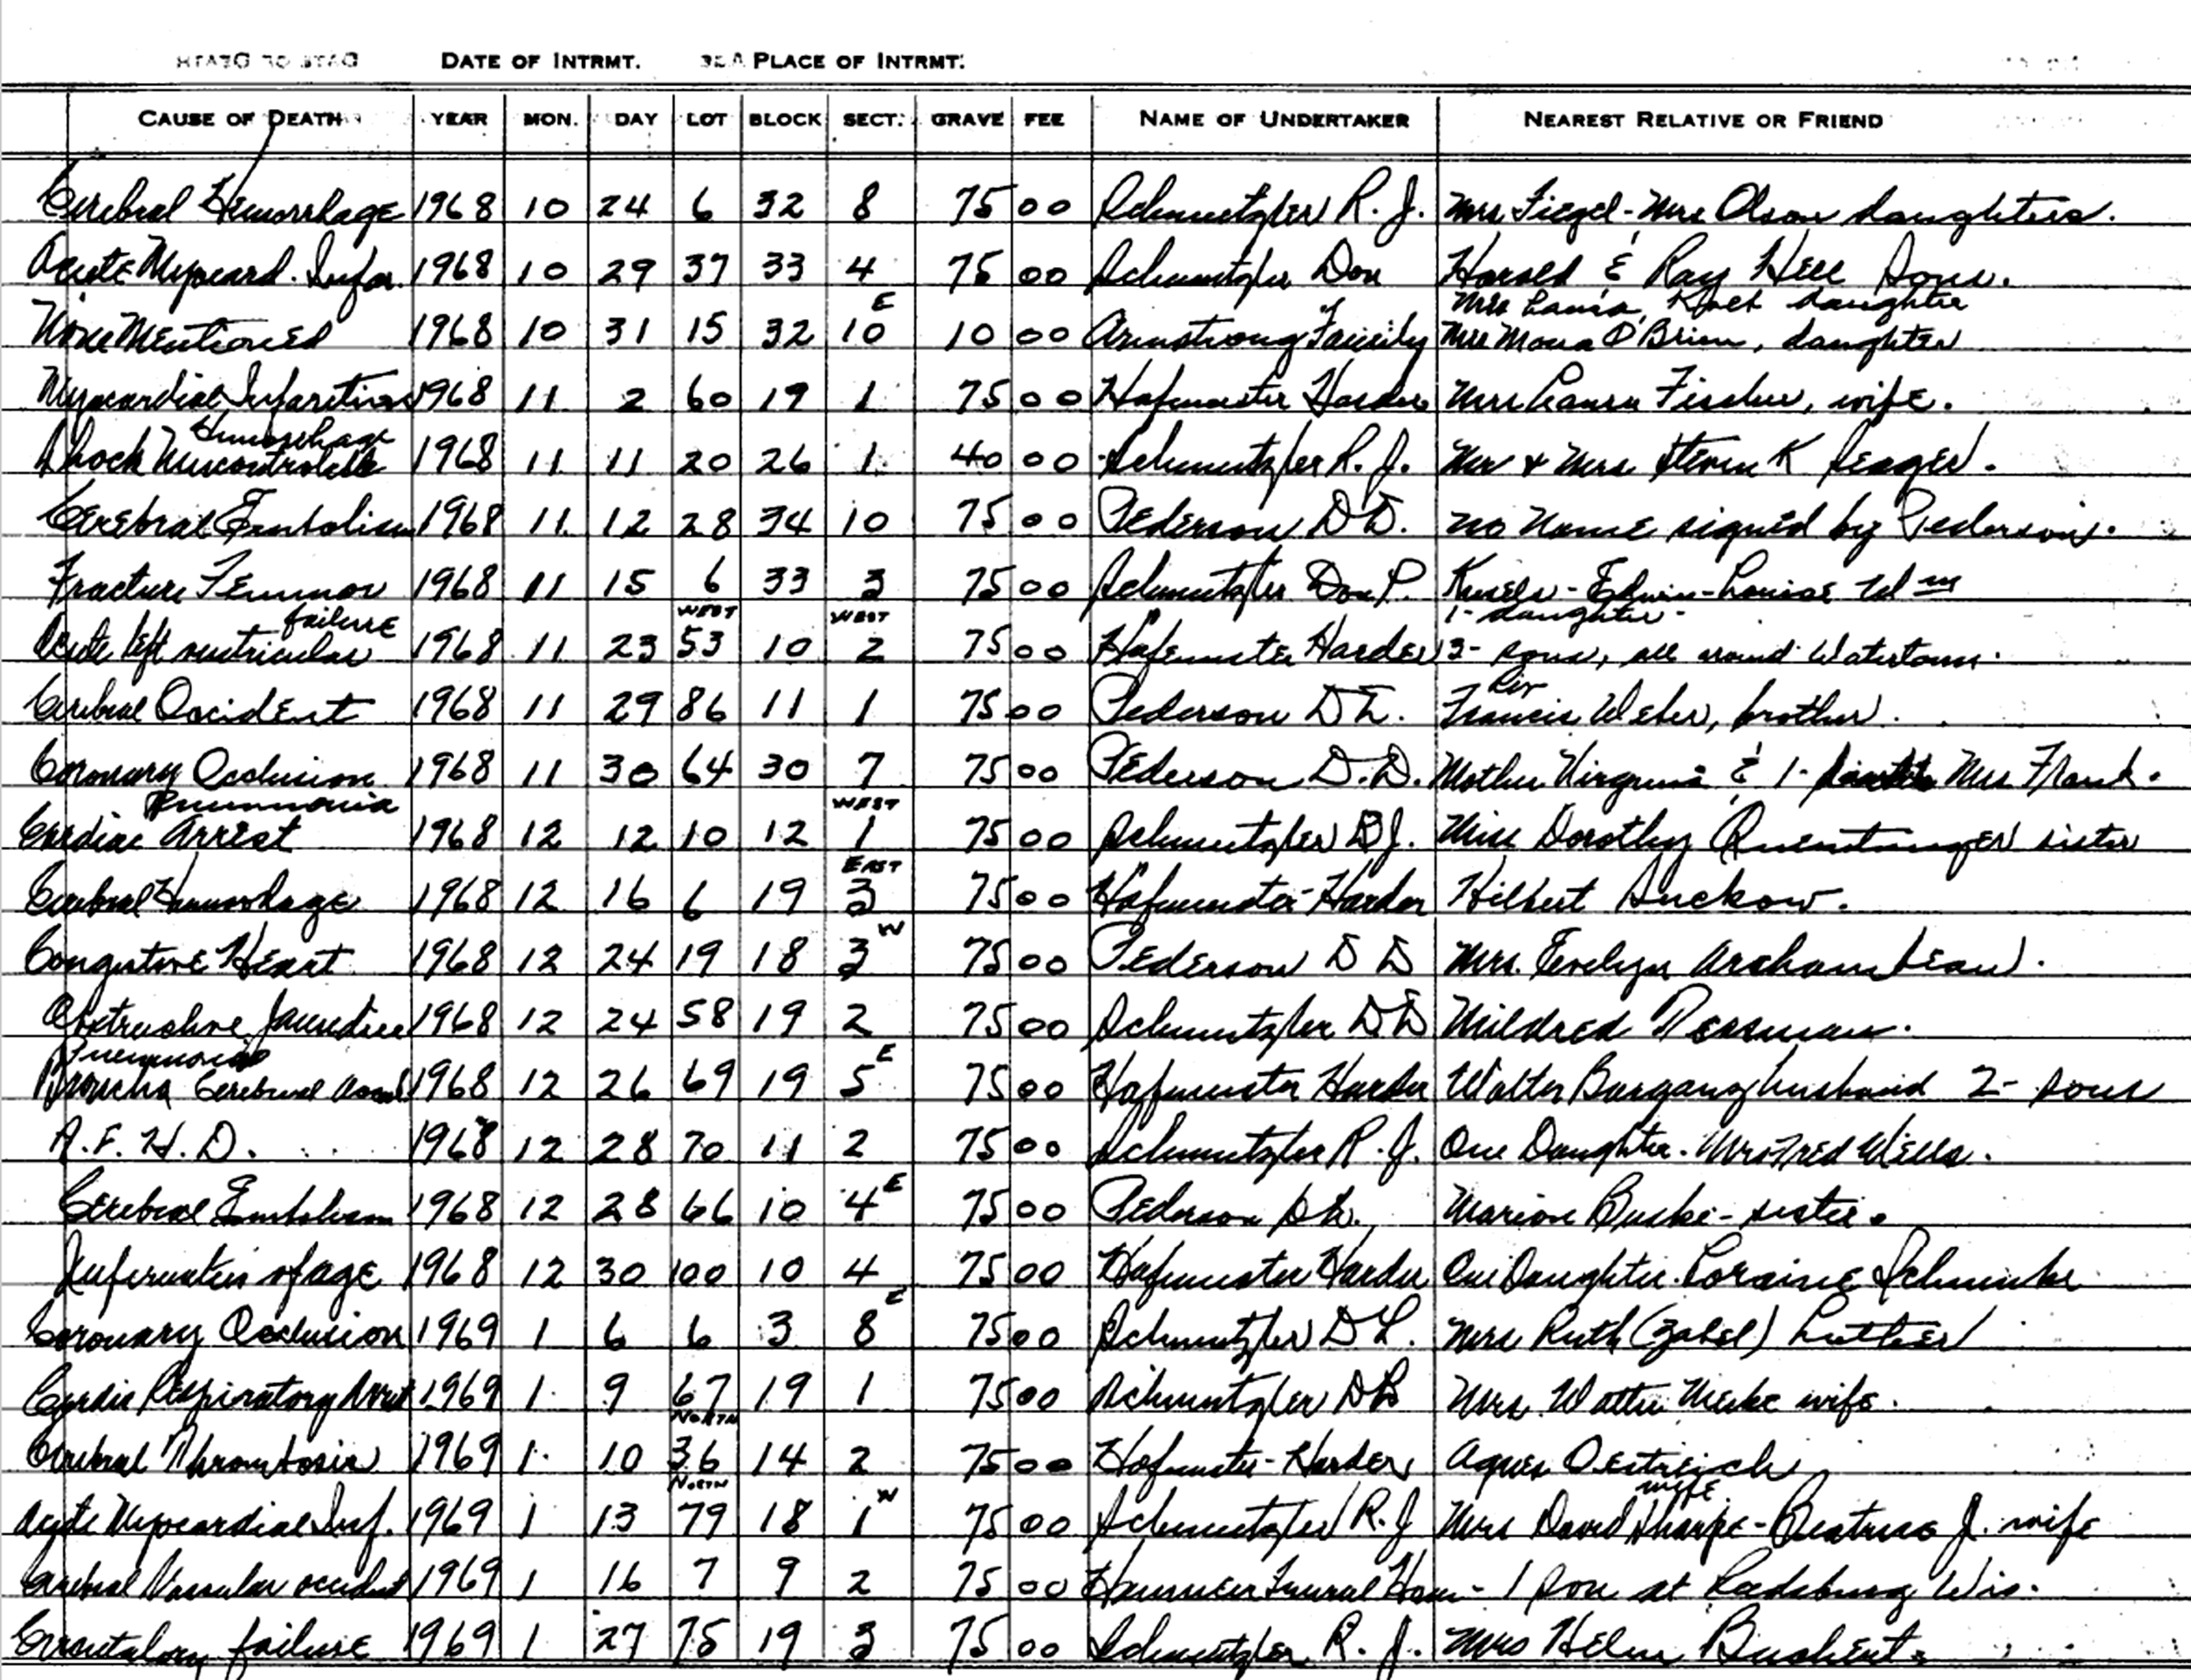 DATE OF INTRMT. PLACE OF INTRMT.
CAUSE OF DEATH YEAR MON. DAY LOT BLOCK SECT. GRAVE FEE NAME OF UNDERTAKER NEAREST RELATIVE OR FRIEND
Cerebral Hemorrhage 1968 10 24 6 32 8 75 00 Schmutzler R. J. Mrs Fiegel - Mrs Olson daughters.
Acute Myocard. Infar. 1968 10 29 37 33 4 75 00 Schmutzler Don Harold & Ray Hell Sons.
E Mrs Laura daughter
None Mentioned 1968 10 31 15 32 10 10 00 Armstrong Family Mrs Mona O'Brien, daughter
Myocardial Infarction 1968 11 2 60 19 1 75 00 Hafemeister Harder Mrs Laura Fischer, wife.
Hemorrhage
Shock Uncontrolable 1968 11 11 20 26 1 40 00 Schmutzler R. J. Mr & Mrs Steven K Seager.
Cerebral Embolism 1968 11 12 28 34 10 75 00 Pederson D D. no name signed by Pederson.
Fracture Femmor 1968 11 15 6 33 3 75 00 Schmutzler Don P. - Edwin - Louise Wm
failure WEST WEST 1 - daughter -
Acute left ventricular 1968 11 23 53 10 2 75 00 Hafemeister Harder 3 - sons, all around Watertown.
Rev
Cerebral Accident 1968 11 29 86 11 1 75 00 Pederson D D. Francis Weber, brother.
Coronary Occlusion 1968 11 30 64 30 7 75 00 Pederson D. D. Mother Virginia & 1 - Mrs Frank.
Pneumonia WEST
Cardiac Arrest 1968 12 12 10 12 1 75 00 Schmutzler R J. Miss Dorothy sister
EAST
Cerebral Hemorhage 1968 12 16 6 19 3 75 00 Hafemeister - Harder Hilbert Suckow.
W
Congestive Heart 1968 12 24 19 18 3 75 00 Pederson D D Mrs. Evelyn Archambeau.
Obstructive Jaundice 1968 12 24 58 19 2 75 00 Schmutzler D D Mildred
Pneumonia E
Broncha Cerebral 1968 12 26 69 19 5 75 00 Hafemeister Harder Walter Barganz husband 2 - sons
A. F. H. D. 1968 12 28 70 11 2 75 00 Schmutzler R. J. One Daughter. Mrs Fred Wells.
E
Cerebral Embolism 1968 12 28 66 10 4 75 00 Pederson Marion Buske - sister.
of age 1968 12 30 100 10 4 75 00 Hafemeister Harder One Daughter. Loraine Schmuke
E
Coronary Occlusion 1969 1 6 6 3 8 75 00 Schmutzler D L. Mrs Ruth (Zabel) Luther
Cardic Respiratory Arrest 1969 1 9 67 19 1 75 00 Schmutzler D L Mrs. Walter Meske wife.
NORTH
Cerebral Thrombosis 1969 1 10 36 14 2 75 00 Hafemeister - Harder Agnes Oestreich
NORTH W wife
Acute Myocardial Inf. 1969 1 13 79 18 1 75 00 Schmutzler R. J Mrs David Sharpe - Beatrice J. wife
Cerebral Vascular accident 1969 1 16 7 9 2 75 00 Funeral Home - 1 son at Reedsburg Wis.
failure 1969 1 27 75 19 3 75 00 Schmutzler R. J. Mrs Helen